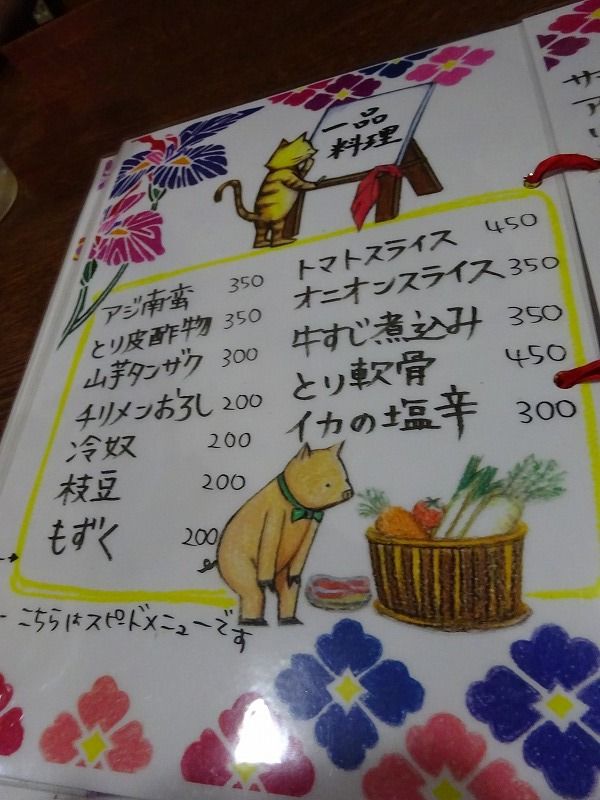 一品
料理
アジ南蛮 350
とり皮酢物 350
山芋タンザク 300
チリメンおろし 200
冷奴 200
枝豆 200
もずく 200
トマトスライス 450
オニオンスライス 350
牛すじ煮込み 350
とり軟骨 450
イカの塩辛 300
こちらはスピードメニューです